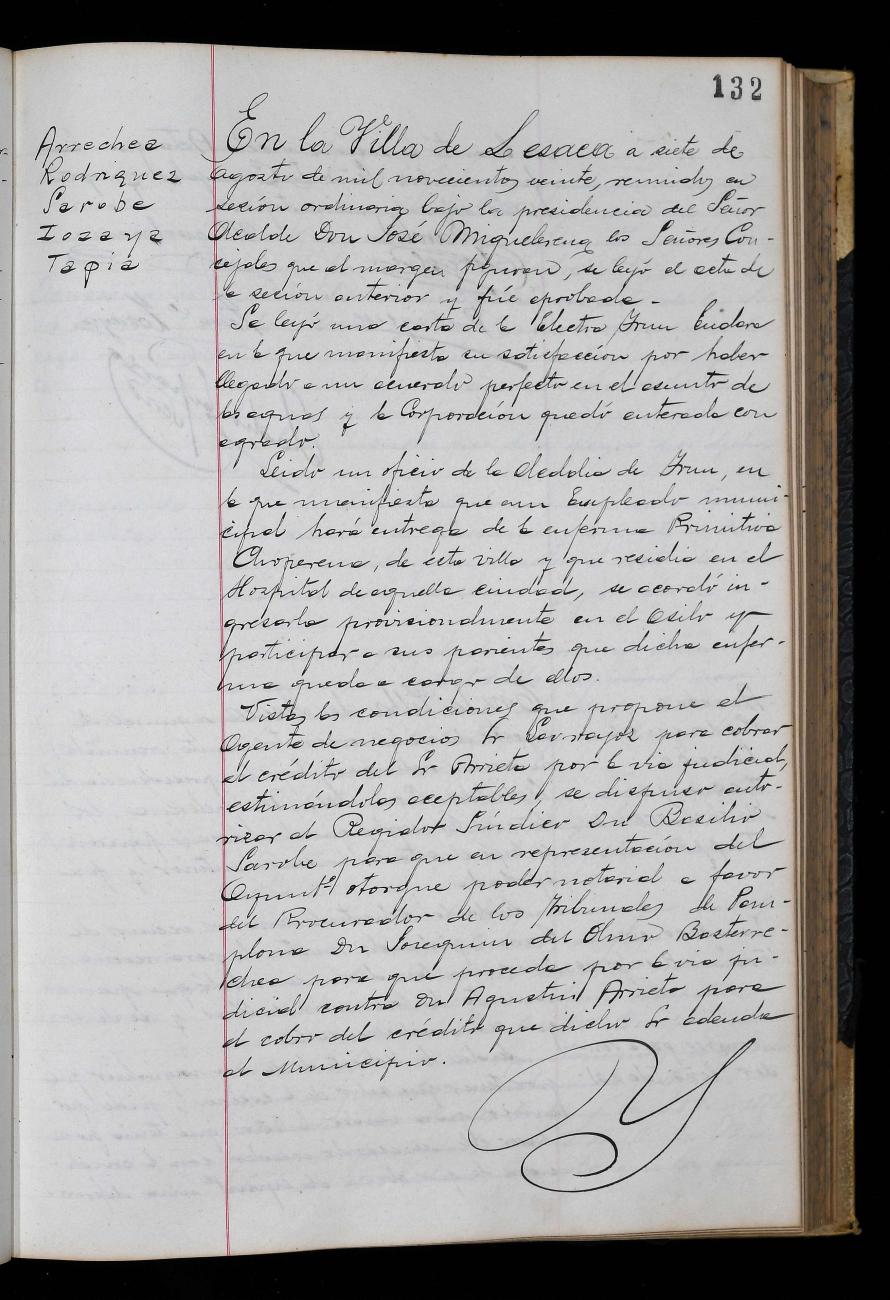 132
Arrechea
Rodriguez
Sarobe
Iosaya
Tapia
En la Villa de Lesaca a siete de
agosto de mil novecientos veinte, reunidos en
sesión ordinaria bajo la presidencia del Señor
Alcalde Don José Miguelerena los Señores Con-
cejales que al margen figuran, se leyó el acta de
la seción anterior y fué aprobada.
Se leyó una carta de la Electra Irun Endara
en la que manifiesta su satisfacción por haber
llegado a un acuerdo perfecto en el asunto de
las aguas y la Corporación quedó enterada con
agrado.
Leido un oficio de la Alcaldia de Irun, en
la que manifiesta que un Empleado muni-
cipal hará entrega de la enferma Primitiva
Choperena, de esta villa y que residia en el
Hospital de aquella ciudad, se acordó in-
gresarla provisionalmente en el Asilo y
participar a sus parientes que dicha enfer-
ma queda a cargo de ellos.
Vistas las condiciones que propone el
Agente de negocios Sr para cobrar
el crédito del Sr Arrieta por la via judicial,
estimándolas aceptables, se dispuso auto-
rizar al Regidor Síndico Dn Basilio
Sarobe para que en representación del
Ayuntº otorgue poder notarial a favor
del Procurador de los Tribunales de Pam-
plona Dn Joaquin del Olmo Basterre-
chea para que proceda por la via ju-
dicial contra Dn Agustin Arrieta para
el cobro del crédito que dicho Sr adeuda
al Municipio.